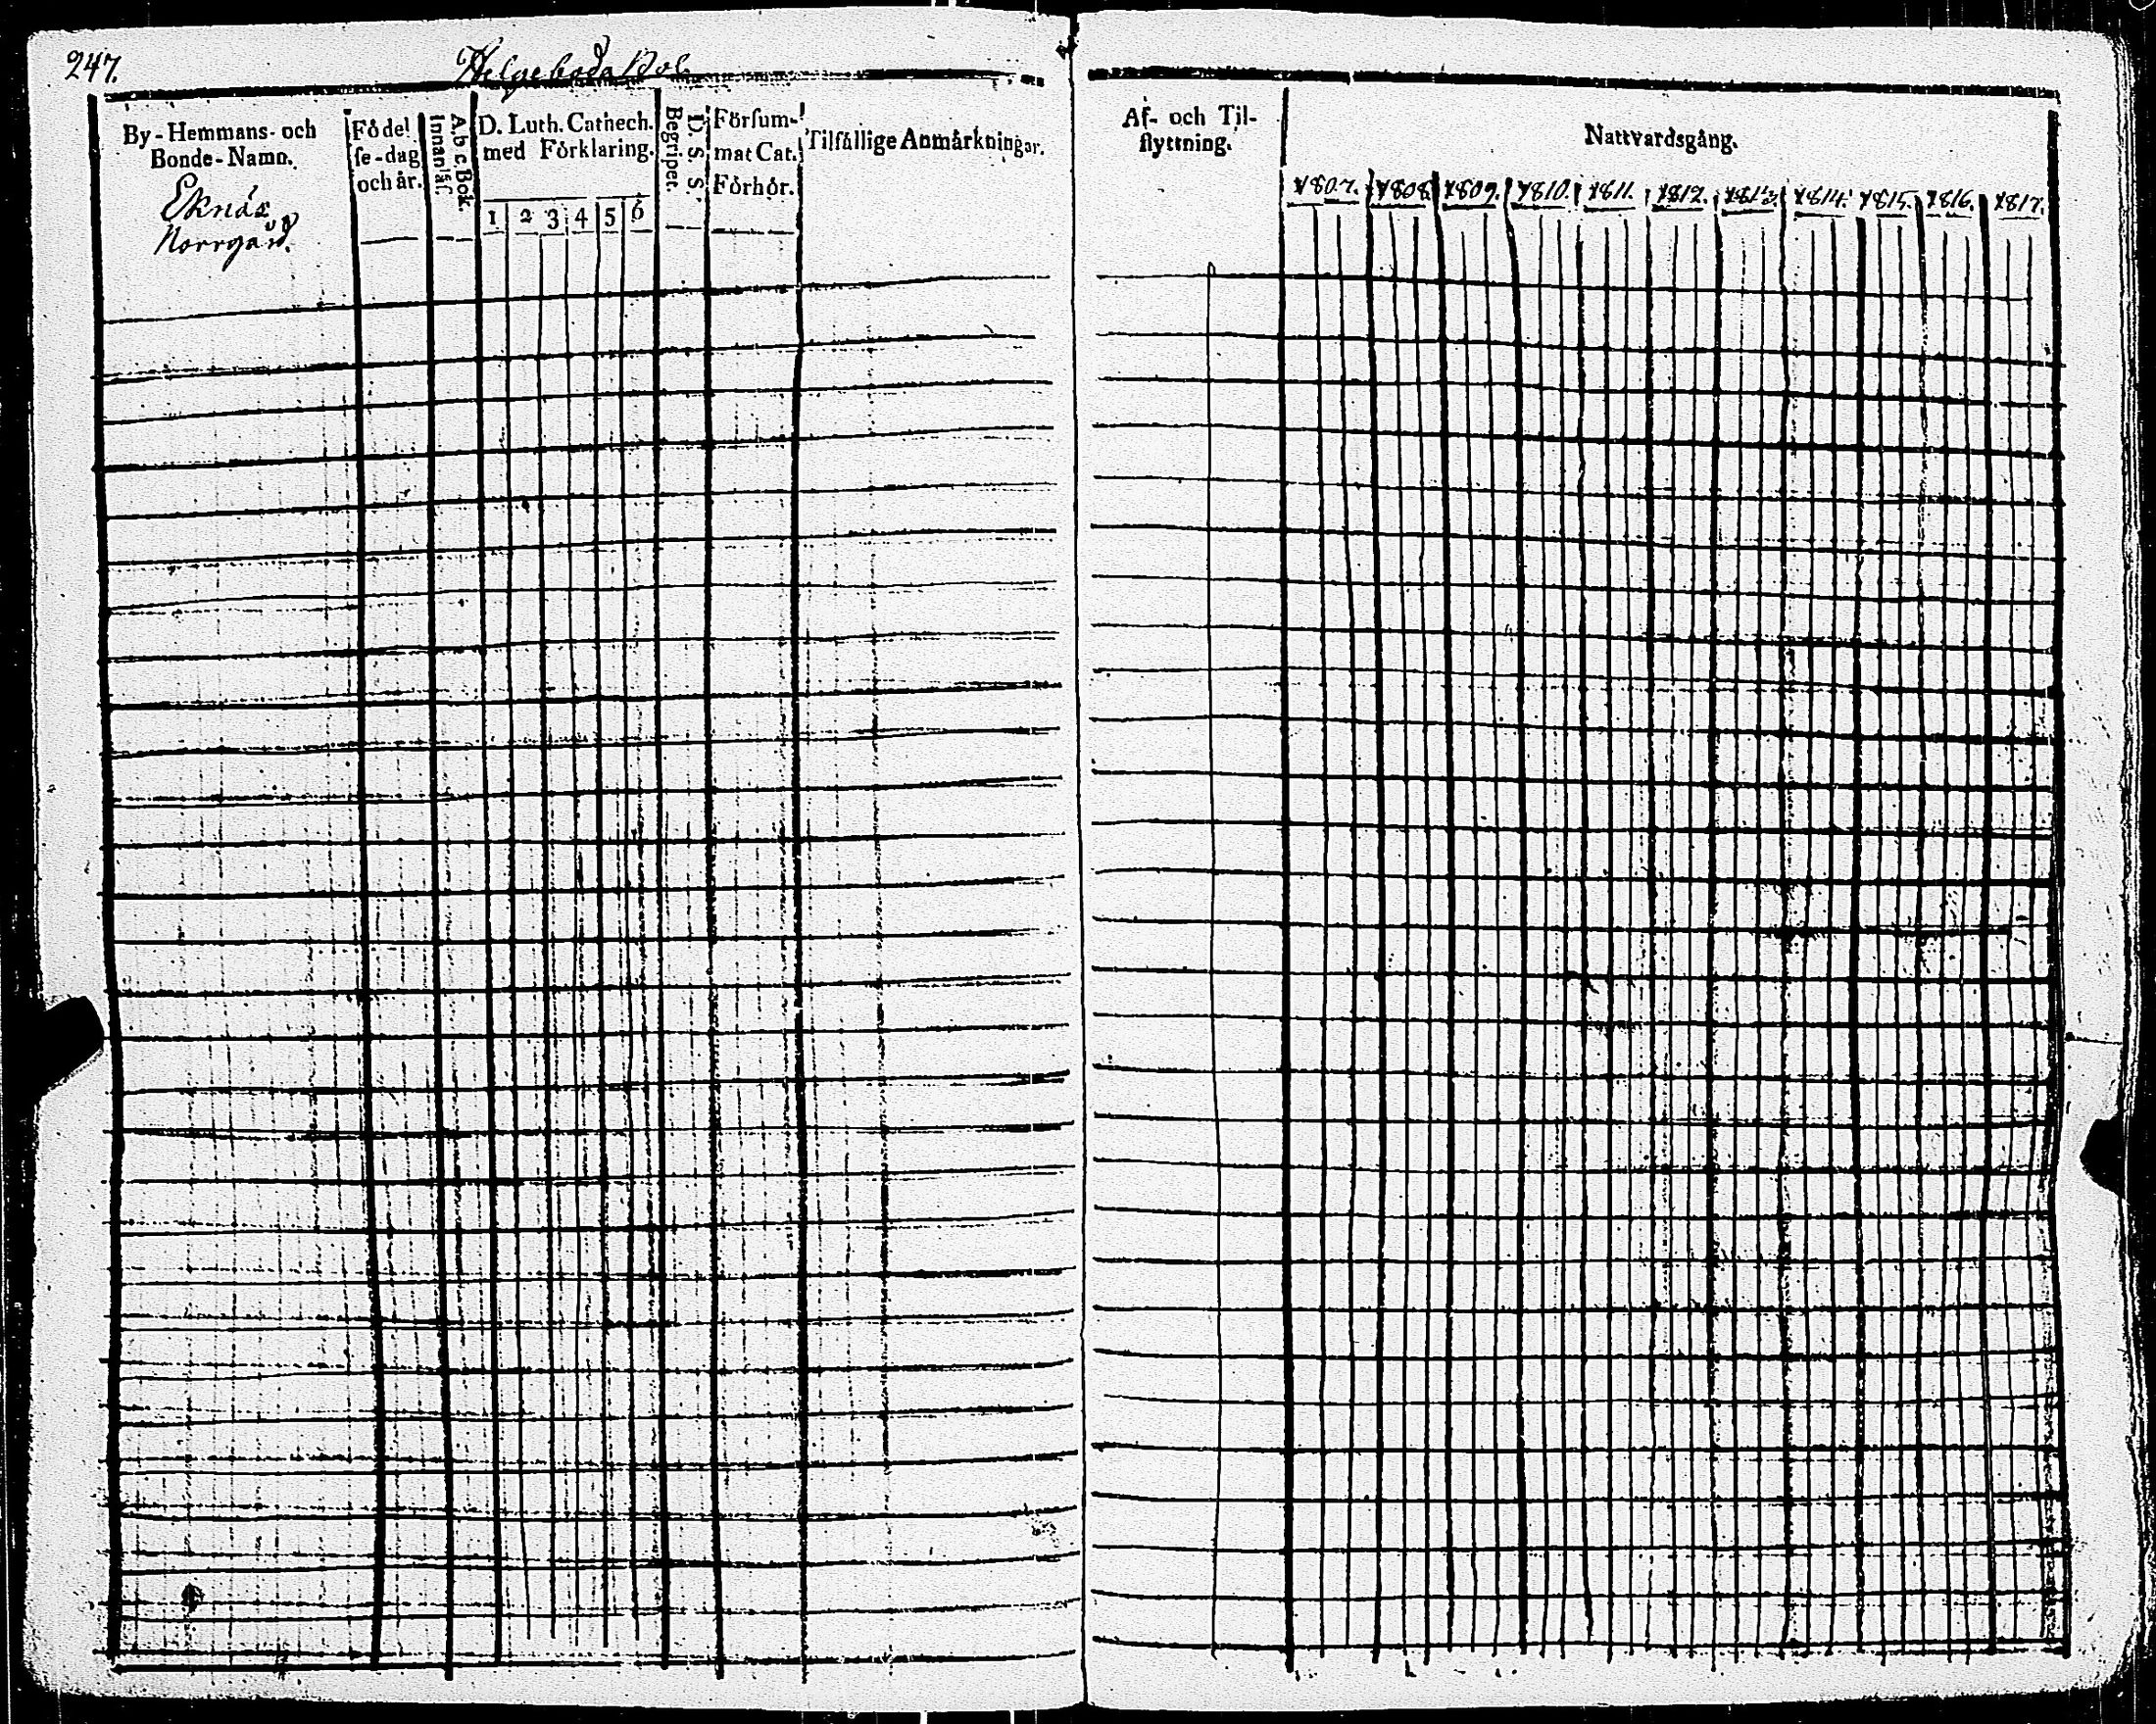 247.
Helgeboda Bol
By-Hemmans- och
Bonde-Namn.
Eknäs
Norrgård.
Födel
se-dag
och år.
A.b.c.Bok.
Innanläs.
D. Luth. Cathech.
med Förklaring.
1 2 3 4 5 6
D. S. S.
Begriper.
Försum-
mat Cat.
Förhör.
Tilfällige Anmärkningar.
Af- och Til-
flyttning.
Nattvardsgång.
1807. 1808. 1809. 1810. 1811. 1812. 1813. 1814. 1815. 1816. 1817.